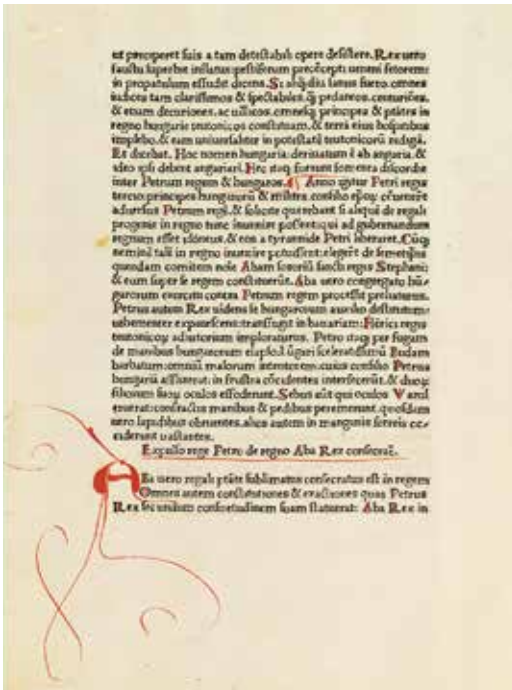 ut preciperet suis a tam detestabili opere desistere. Rex uero
faustu superbie inflatus: pestiferum precõcepti
in propatulum effudit dicens. Si aliq̃diu sanus fuero. omnes
iudices tam clarissimos & spectabiles. q̃ pedaneos. centuriões.
& etiam decuriones. ac uillicos. omnesq; principes & ptãtes in
regno hungarie teutonicos constituam. & terrã eius hospitibus
implebo. & eam uniuersaliter in potestatẽ teutonicorũ redigã.
Et dicebat. Hoc nomen hungaria: deriuatum ẽ ab angaria. &
ideo ipsi debent angariari. Hec itaq; fuerunt fomenta discordie
inter Petrum regem & hungaros. Anno igitur Petri regis
tercio: principes hungarorũ & milites. consilio
aduersus Petrum regẽ. & solicite querebant si aliquẽ de regali
progenie in regno tunc inuenire possent: qui ad gubernandum
regnum esset idoneus. & eos a tyrannide Petri liberaret. Cũq;
neminẽ talẽ in regno inuenire potuissent: elegerũt de semetipsis
quendam comitem noĩe Abam sororiũ sancti regis Stephani:
& eum super se regem constituerũt. Aba uero congregato hũ-
garorum exercitu contra Petrum regem processit preliaturus.
Petrus autem Rex uidens se hungarorum auxilio destitutum:
uehementer expauescens: transfugit in bauariam: Hẽrici regis
teutonicoȝ adiutorium imploraturus. Petro itaq; per fugam
de manibus hungarorum elapso: hũgari sceleratissimũ Budam
barbatum: omniũ malorum intentorem: cuius consilio Petrus
hungariã afflixerat: in frustra cõcidentes interfecerũt. & duoȝ
filiorum suoȝ oculos effoderunt. Sebus aũt qui oculos Vazul
eruerat: confractis manibus & pedibus peremerunt. quosdam
uero lapidibus obruentes. alios autem in manganis ferreis ce-
ciderunt
Expulso rege Petro de regno Aba Rex consecrat̃.
ABa uero regali ptãte sublimatus consecratus est in regem
Omnes autem constitutiones & exactiones quas Petrus
Rex secundum consuetudinem suam statuerat: Aba Rex in